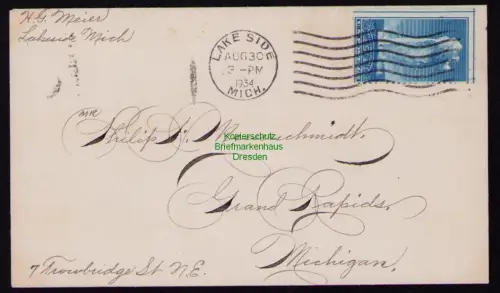 H.G. Meier
Lakeside Mich
LAKE SIDE
AUG 30
3-PM
1934
MICH.
Mr
Philip H.
Kopierschutz
Briefmarkenhaus
Dresden
Grand Rapids.
Michigan.
7 Trowbridge St N.E.